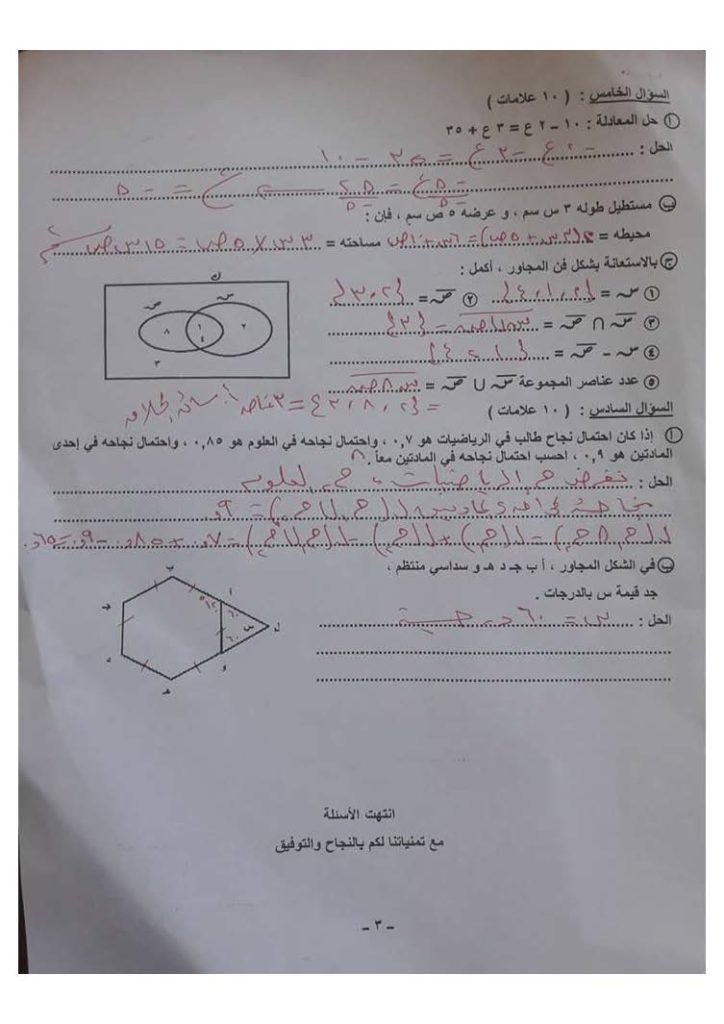 السؤال الخامس : ( ١٠ علامات )
أ حل المعادلة : ١٠ – ٢ ع = ٣ ع + ٣٥
الحل : – ٢ ع – ٣ ع = ٣٥ – ١٠
– ٥ ع = ٢٥ ع = – ٥
– ٥ – ٥
ب مستطيل طوله ٣ س سم ، و عرضه ٥ ص سم ، فإن :
محيطه = ٢(٣س + ٥ص) = ٦س + ١٠ص مساحته = ٣س × ٥ص = ١٥ س ص سم٢
ج بالاستعانة بشكل فن المجاور ، أكمل :
١ س = {٢ ، ١ ، ٤} ٢ ص = {٢ ، ٣}
٣ س ∩ ص = س ∪ ص = {٣}
٤ س – ص = {١ ، ٤}
٥ عدد عناصر المجموعة س ∪ ص = س ∩ ص
= {٢ ، ٨ ، ٣} = ٣ عناصر
ك
س
ص
٨
١
٤
٢
٣
السؤال السادس : ( ١٠ علامات )
أ إذا كان احتمال نجاح طالب في الرياضيات هو ٠,٧ ، واحتمال نجاحه في العلوم هو ٠,٨٥ ، واحتمال نجاحه في إحدى
المادتين هو ٠,٩ ، احسب احتمال نجاحه في المادتين معاً .
الحل : نفرض ح١ الرياضيات ، ح٢ العلوم
ل(ح١ ∪ ح٢) = ٠,٩
ل(ح١ ∩ ح٢) = ل(ح١) + ل(ح٢) – ل(ح١ ∪ ح٢) = ٠,٧ + ٠,٨٥ – ٠,٩ = ٠,٦٥
ب في الشكل المجاور ، أ ب جـ د هـ و سداسي منتظم ،
جد قيمة س بالدرجات .
الحل : س = ٦٠ درجة
ب
أ
جـ
١٢٠
٦٠
س
ل
٦٠
د
و
هـ
انتهت الأسئلة
مع تمنياتنا لكم بالنجاح والتوفيق
– ٣ –